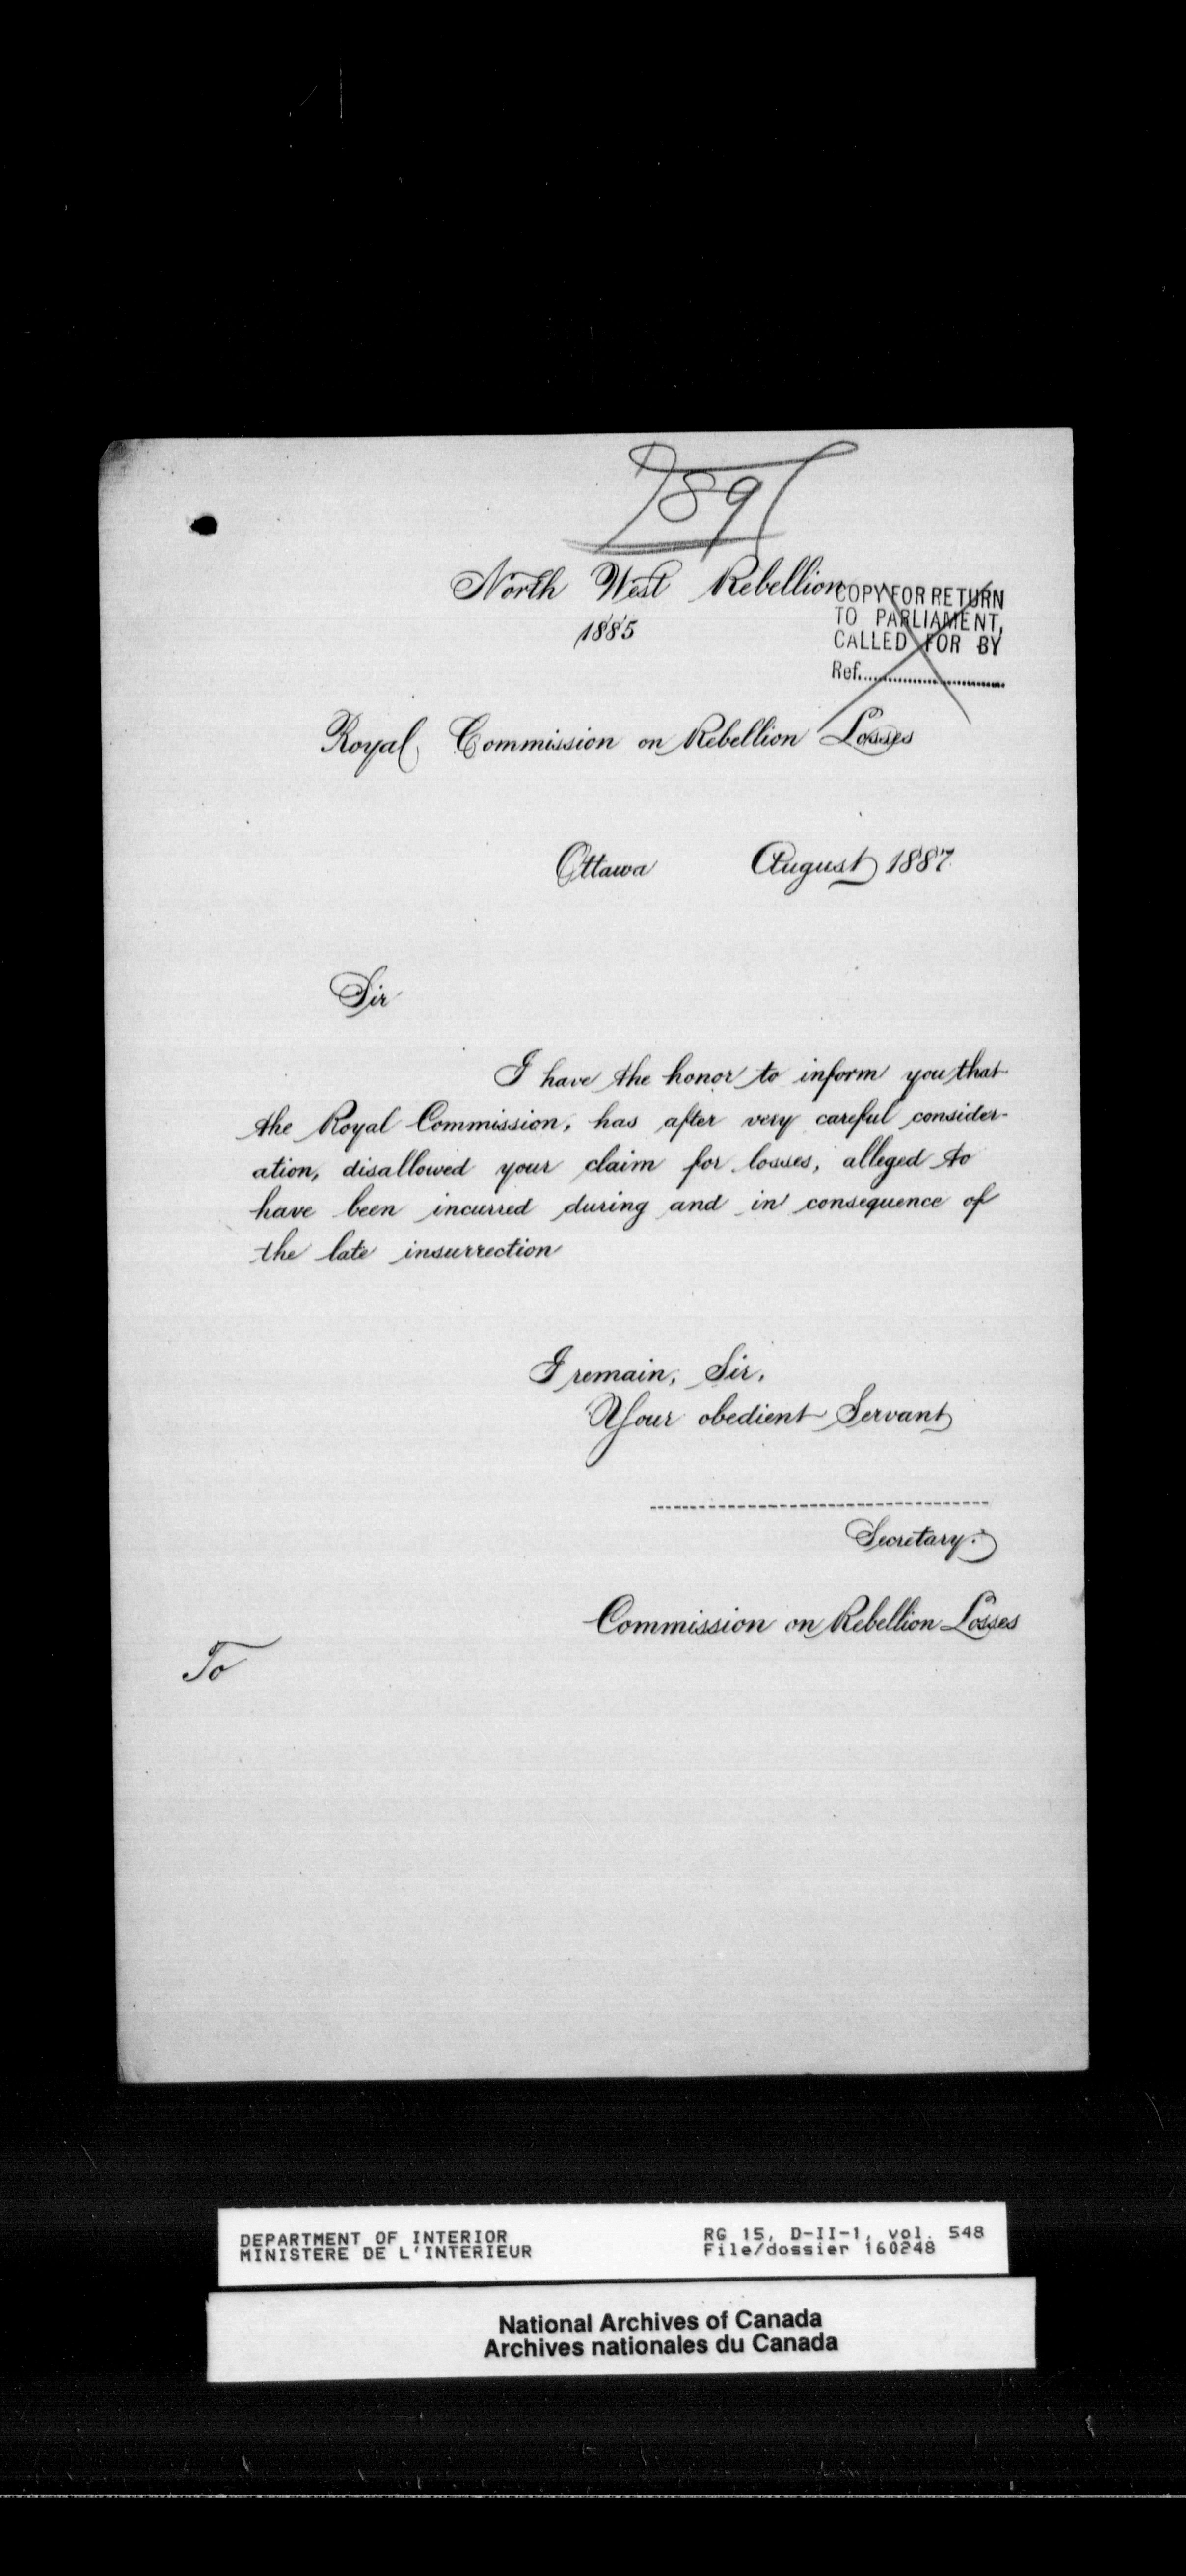 789
North West Rebellion
1885
COPY FOR RETURN
TO PARLIAMENT,
CALLED FOR BY
Ref...............................
Royal Commission on Rebellion Losses
Ottawa August 1887.
Sir
I have the honor to inform you that
the Royal Commission, has after very careful consider-
ation, disallowed your claim for losses, alleged to
have been incurred during and in consequence of
the late insurrection
I remain, Sir,
Your obedient Servant
Secretary.
Commission on Rebellion Losses
To
DEPARTMENT OF INTERIOR RG 15, D-II-1, vol. 548
MINISTERE DE L'INTERIEUR File/dossier 160248
National Archives of Canada
Archives nationales du Canada